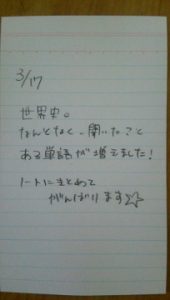 3/17
世界史。
なんとなく、聞いたこと
ある単語が増えました!
ノートにまとめて
がんばります☆